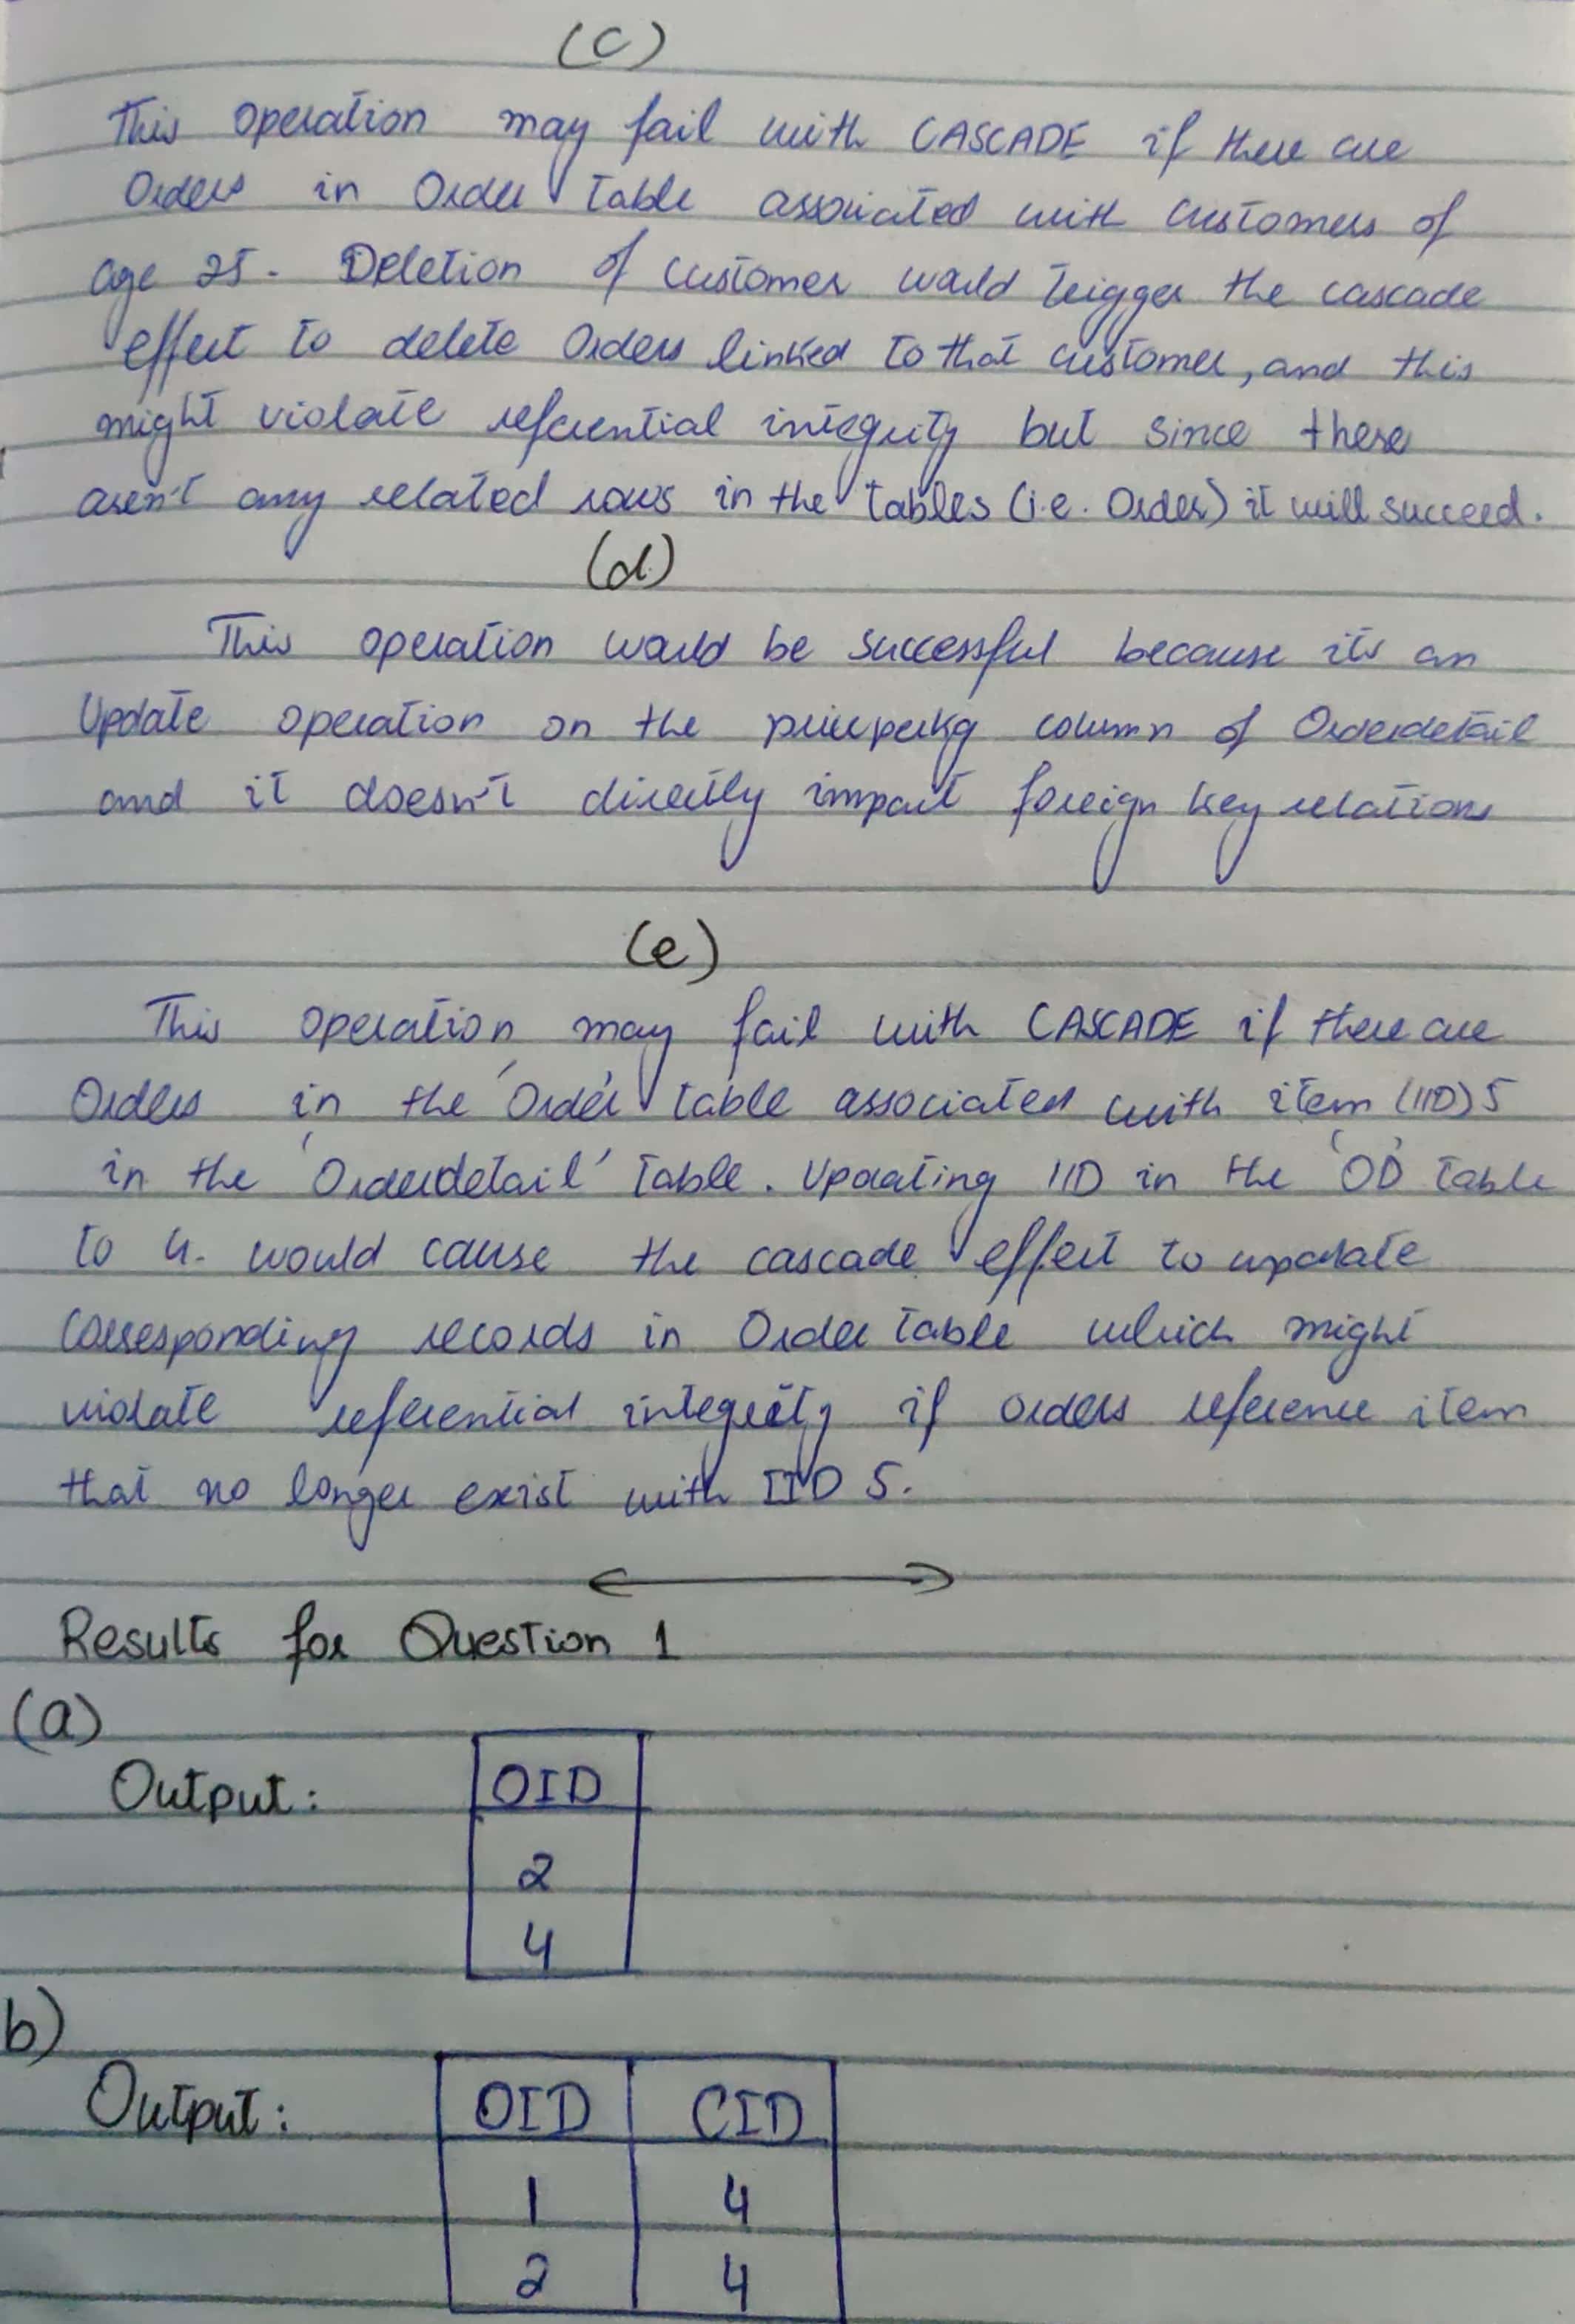 (c)
This operation may fail with CASCADE if there are
Orders in Order Table associated with customers of
age 25. Deletion of customer would trigger the cascade
effect to delete Orders linked to that customer, and this
might violate referential integrity but since there
aren't any related rows in the tables (i.e. Order) it will succeed.
(d)
This operation would be successful because its an
Update operation on the priceperkg column of Orderdetail
and it doesn't directly impact foreign key relations
(e)
This operation may fail with CASCADE if there are
Orders in the 'Order' table associated with item (IID) 5
in the 'Orderdetail' Table. Updating IID in the 'OD' Table
to 4. would cause the cascade effect to update
corresponding records in Order Table which might
violate referential integrity if orders reference item
that no longer exist with IID 5.
Results for Question 1
(a)
Output:
OID
2
4
b)
Output:
OID CID
1 4
2 4